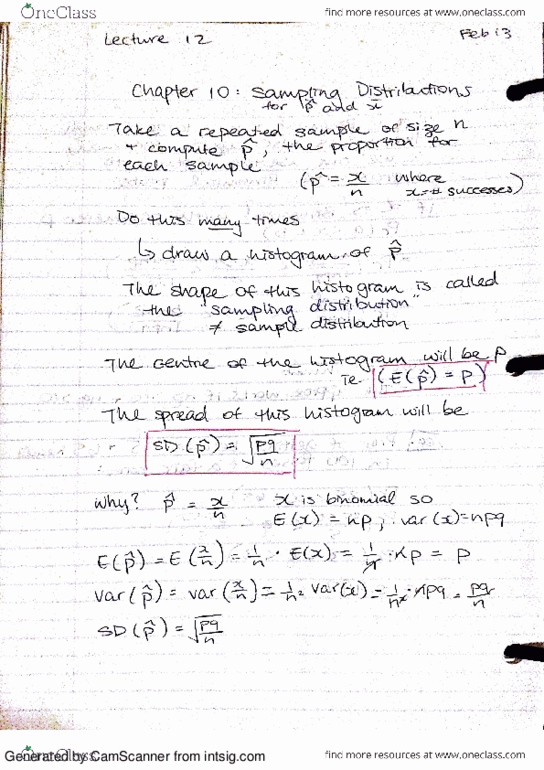 OneClass
find more resources at www.oneclass.com
Lecture 12
Feb 13
Chapter 10: Sampling Distributions
for p̂ and x̄
Take a repeated sample of size n
+ compute p̂, the proportion for
each sample
(p̂ = x/n where
x = # successes)
Do this many times
↳ draw a histogram of p̂
The shape of this histogram is called
the "sampling distribution"
≠ sample distribution
The centre of the histogram will be p
ie. (E(p̂) = p)
The spread of this histogram will be
SD(p̂) = √(pq/n)
why? p̂ = x/n x is binomial so
E(x) = np, var(x)=npq
E(p̂) = E(x/n) = 1/n · E(x) = 1/n · np = p
var(p̂) = var(x/n) = 1/n² var(x) = 1/n² · npq = pq/n
SD(p̂) = √(pq/n)
OneClass
Generated by CamScanner from intsig.com
find more resources at www.oneclass.com